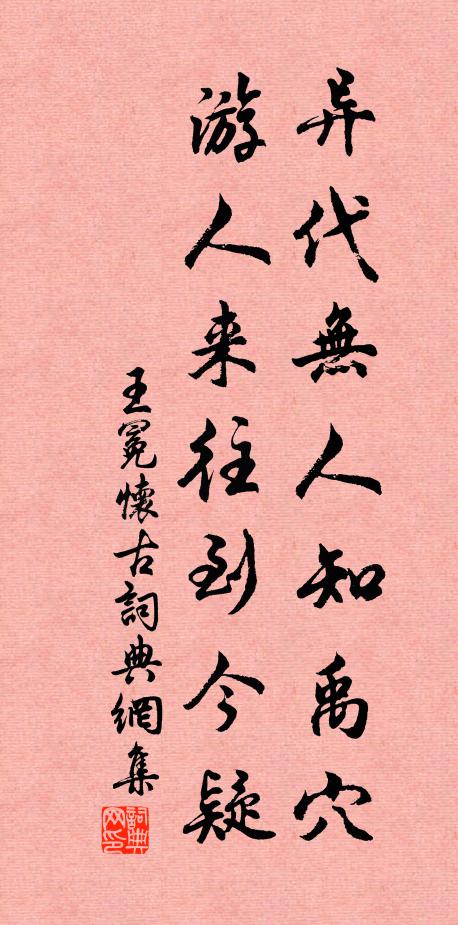 异代無人知禹穴
游人来往到今疑
王冕懷古詞典網集
詞典网印